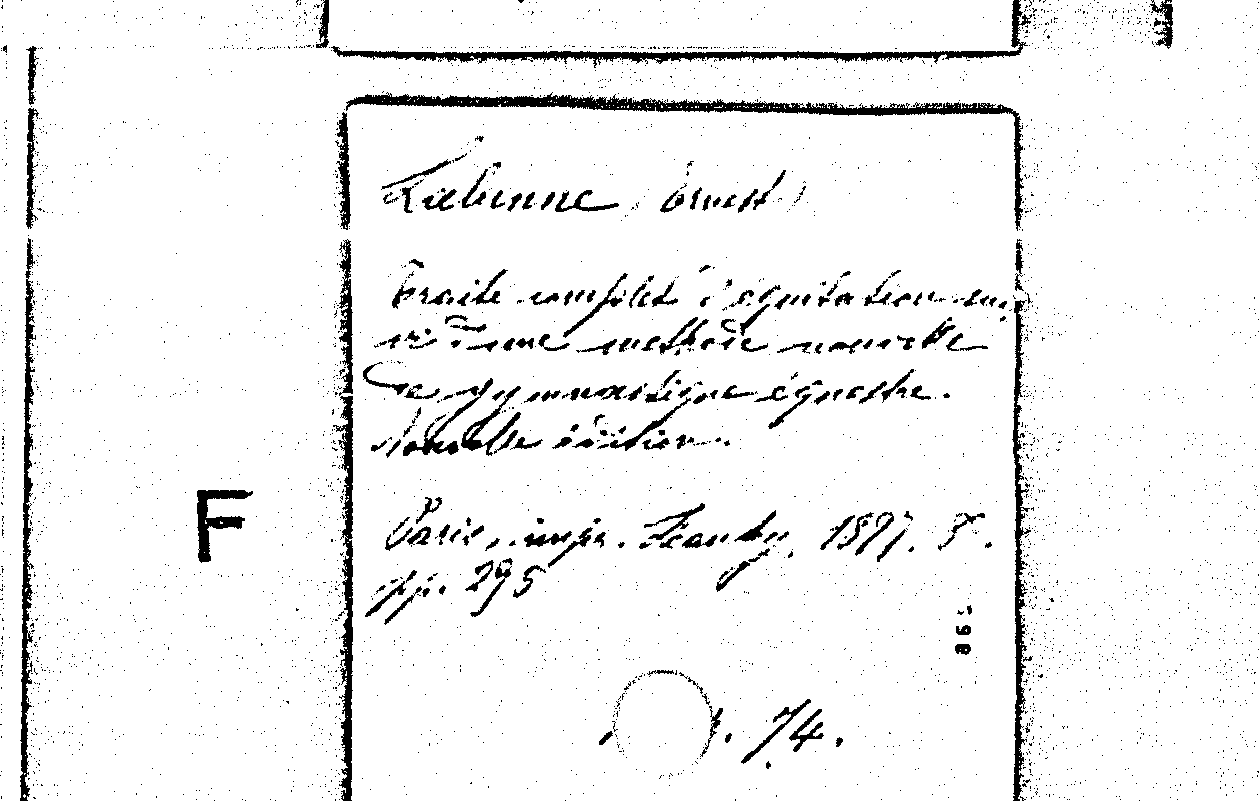 Labenne (Ernest)
Traité complet d'équitation sui-
vi d'une méthode nouvelle
de gymnastique équestre.
Nouvelle édition.
F
Paris, imp. 1897. 8°.
pp. 295
86
74.